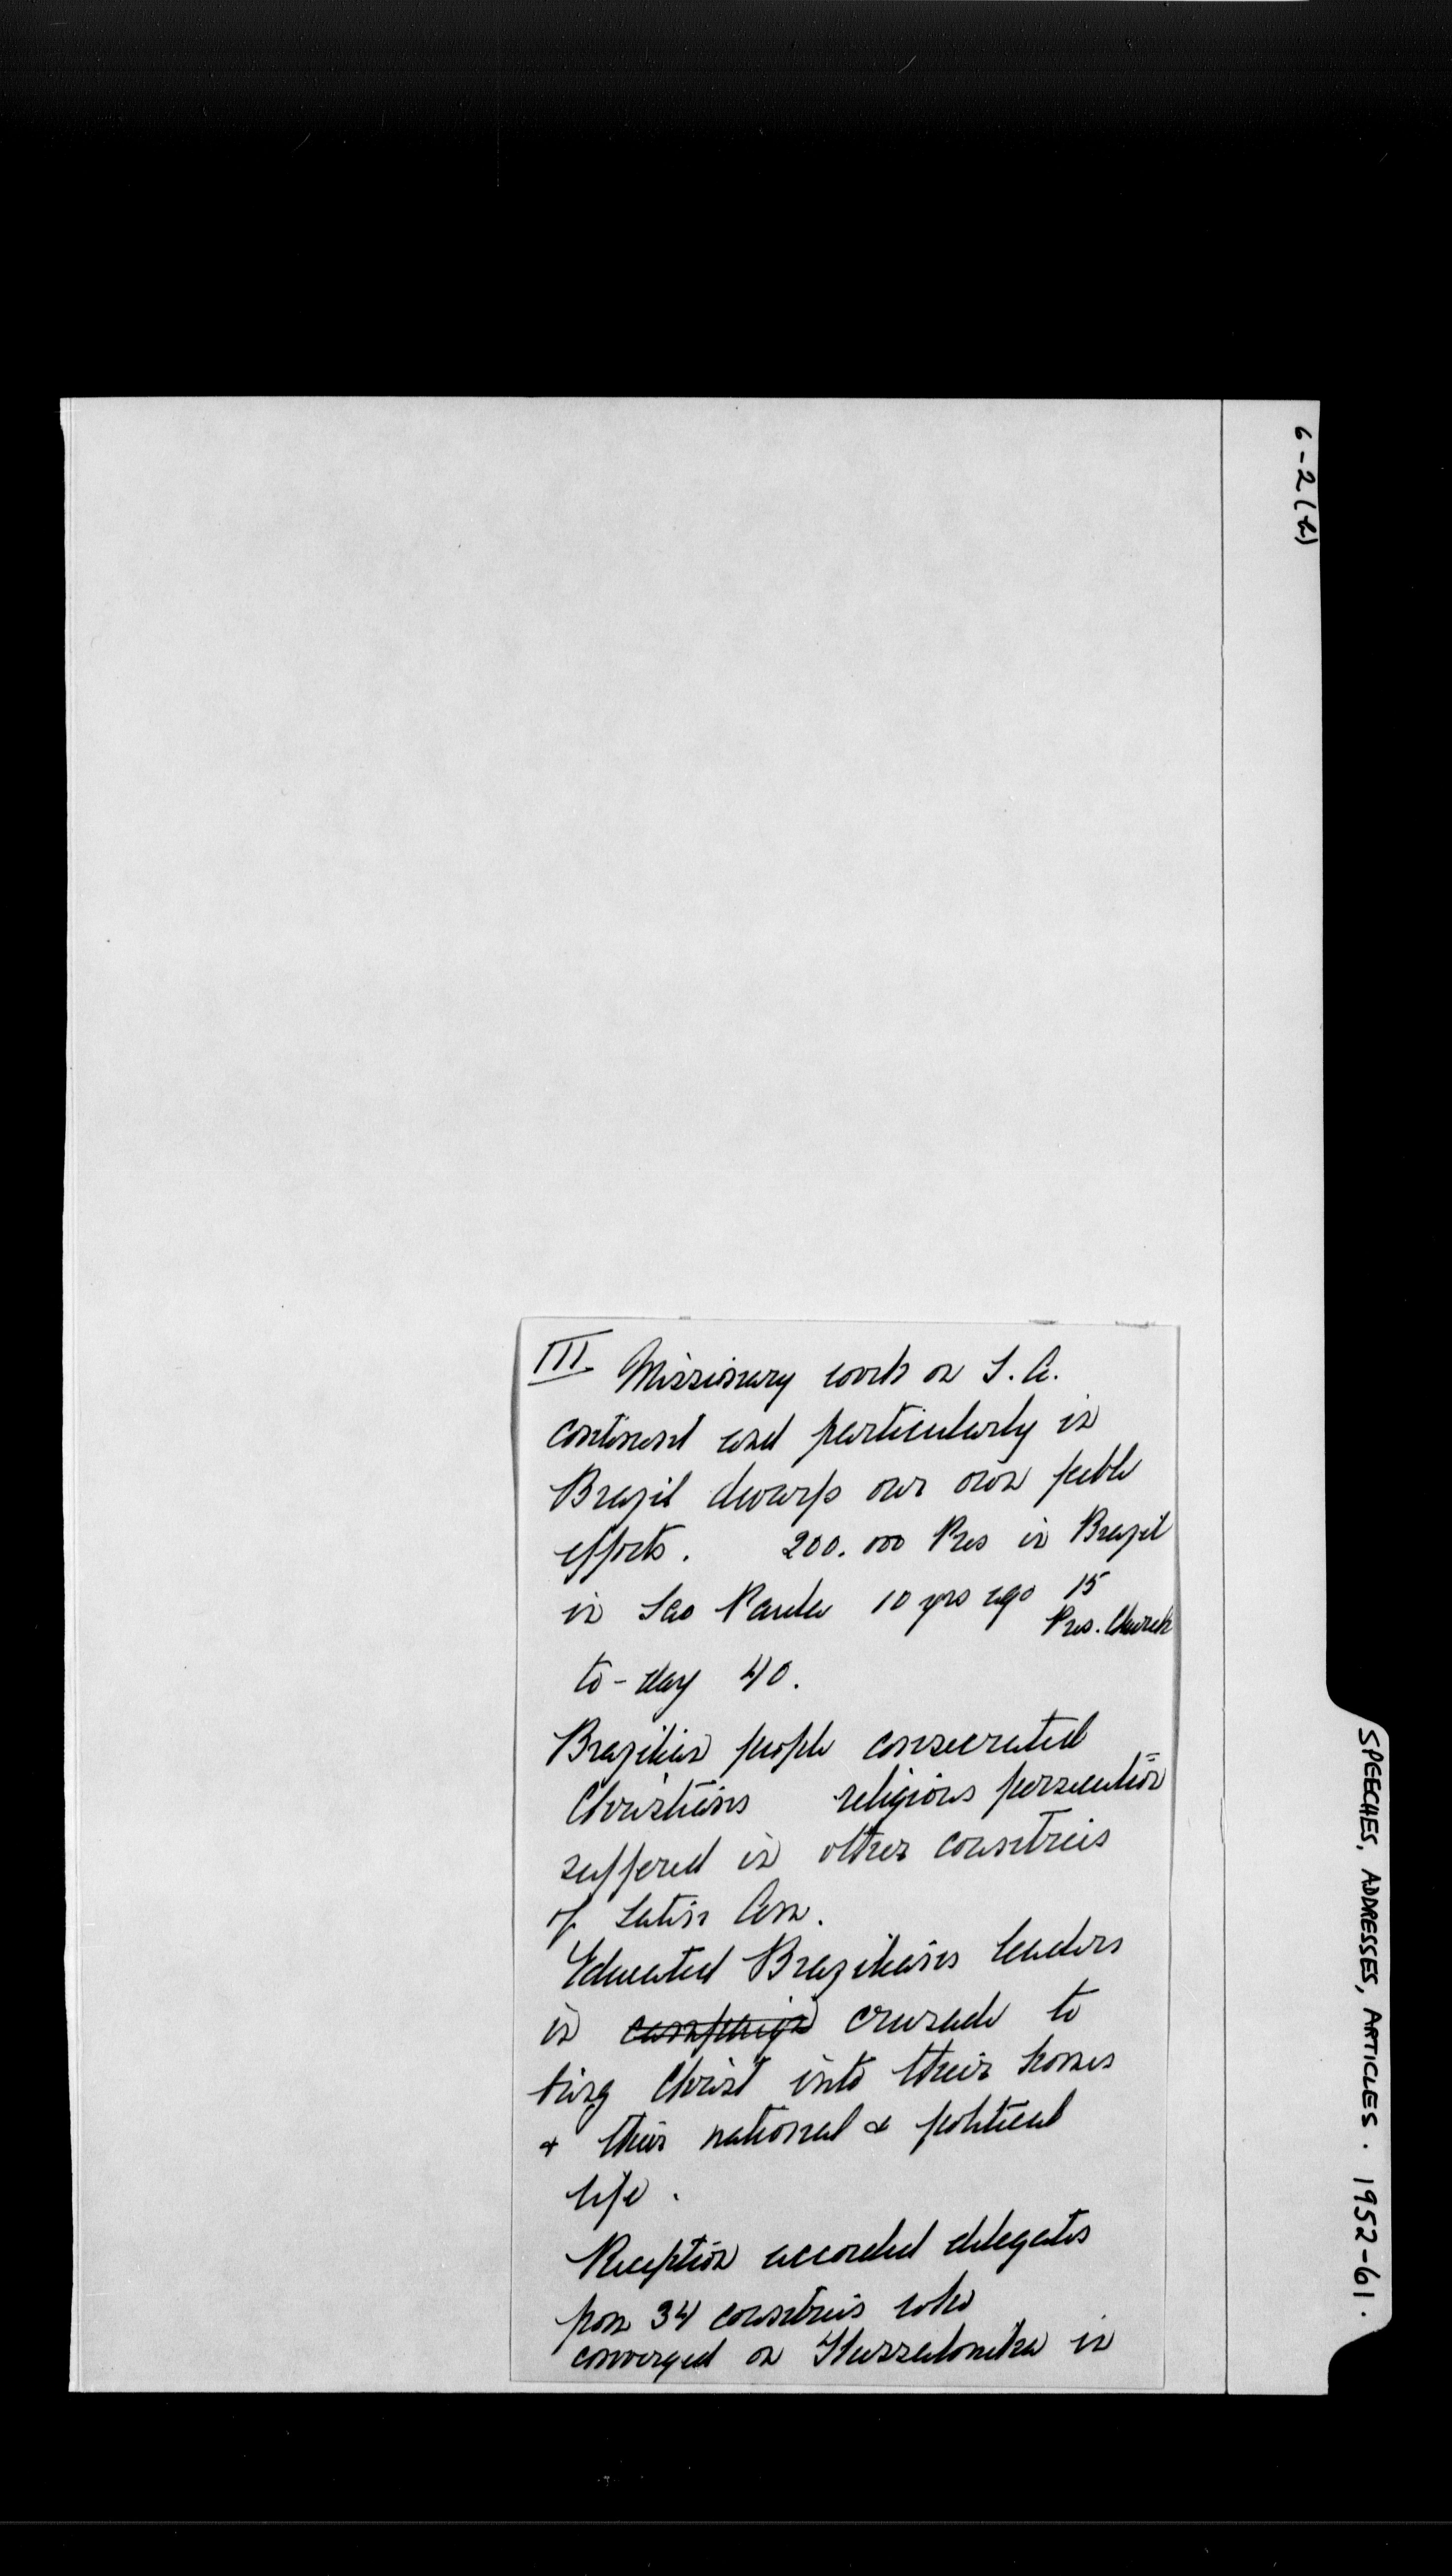 6-2(b)
SPEECHES, ADDRESSES, ARTICLES. 1952-61.
III Missionary work on S. A.
continent and particularly in
Brazil dwarfs our own feeble
efforts. 200.000 Pres in Brazil
in Sao Paulo 10 yrs ago 15
Pres. Church
to-day 40.
Brazilian people consecrated
Christians religious persecution
suffered in other countries
of Latin Am.
Educated Brazilians leaders
in campaign crusade to
bring Christ into their homes
& their national & political
life.
Reception accorded delegates
from 34 countries who
converged on Thessalonika in